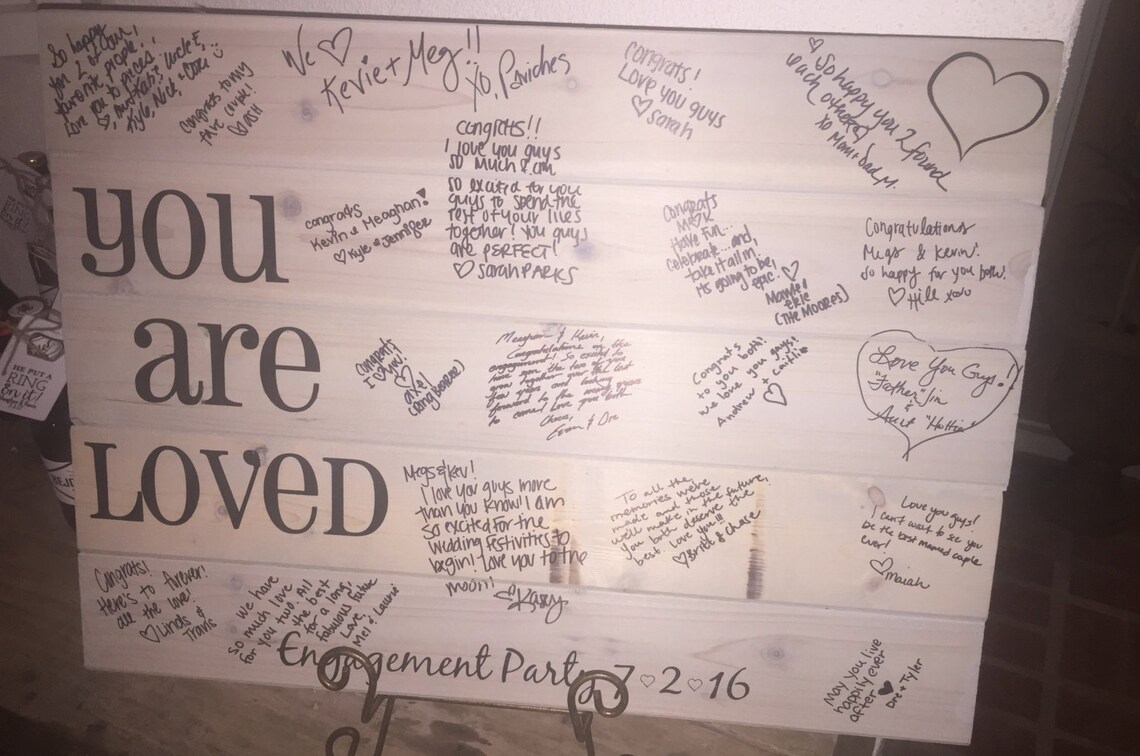 So happy
you 2 of our
favorite people!!
Love you to pieces
Aunt Kab, Uncle E,
Kyle, Nick & Corri
congrats to my
fave couple!
ASH
We ♡
Kevie + Meg!!
XO, Paviches
congrats!
Love you guys
♡ Sarah
So happy you 2 found
each other
XO Mom + Dad M.
congrats!!
I love you guys
so much & am
so excited for you
guys to spend the
rest of your lives
together! You guys
are PERFECT!
♡ SARAH PARKS
you
congrats
Kevin & Meaghan!
♡ Kyle & Jennifer
congrats
M♡K
Have fun...
celebrate... and
take it all in,
it's going to be
epic. ♡
(THE MOORES)
Congratulations
Megs & Kevin!
So happy for you both!
♡ Hill xoxo
are
congrats
I ♡ you!
Meaghan & Kevin,
Congratulations on the
engagement! So excited to
have seen the two of you
grow together over the last
few years and looking
forward to the many years
to come! Love you both
Cheers,
Evan & Dre
Congrats
to you both!
we love you guys!
Andrew + Caitlin
♡
Love You Guys!
"Father Jim"
&
Aunt "Hottie"
LOVED
Megs & Kev!
I love you guys more
than you know! I am
so excited for the
wedding festivities to
begin! Love you to the
moon!
♡ Kasey
To all the
memories we've
made and those
we'll make in the future,
you both deserve the
best. Love you!!!
♡ Bridt & Chase
Love you guys!
I can't wait to see you
be the best married couple
ever!
♡ Maiah
Congrats!
Here's to forever!
all the love!
♡ Linds &
Travis
We have
so much love
for you two. All
the best
for a long,
fabulous future
Love,
Mel & Laurie
Engagement Party 7♡2♡16
May you live
happily ever
after ♥
Dre + Tyler
WE PUT A
RING
on it!